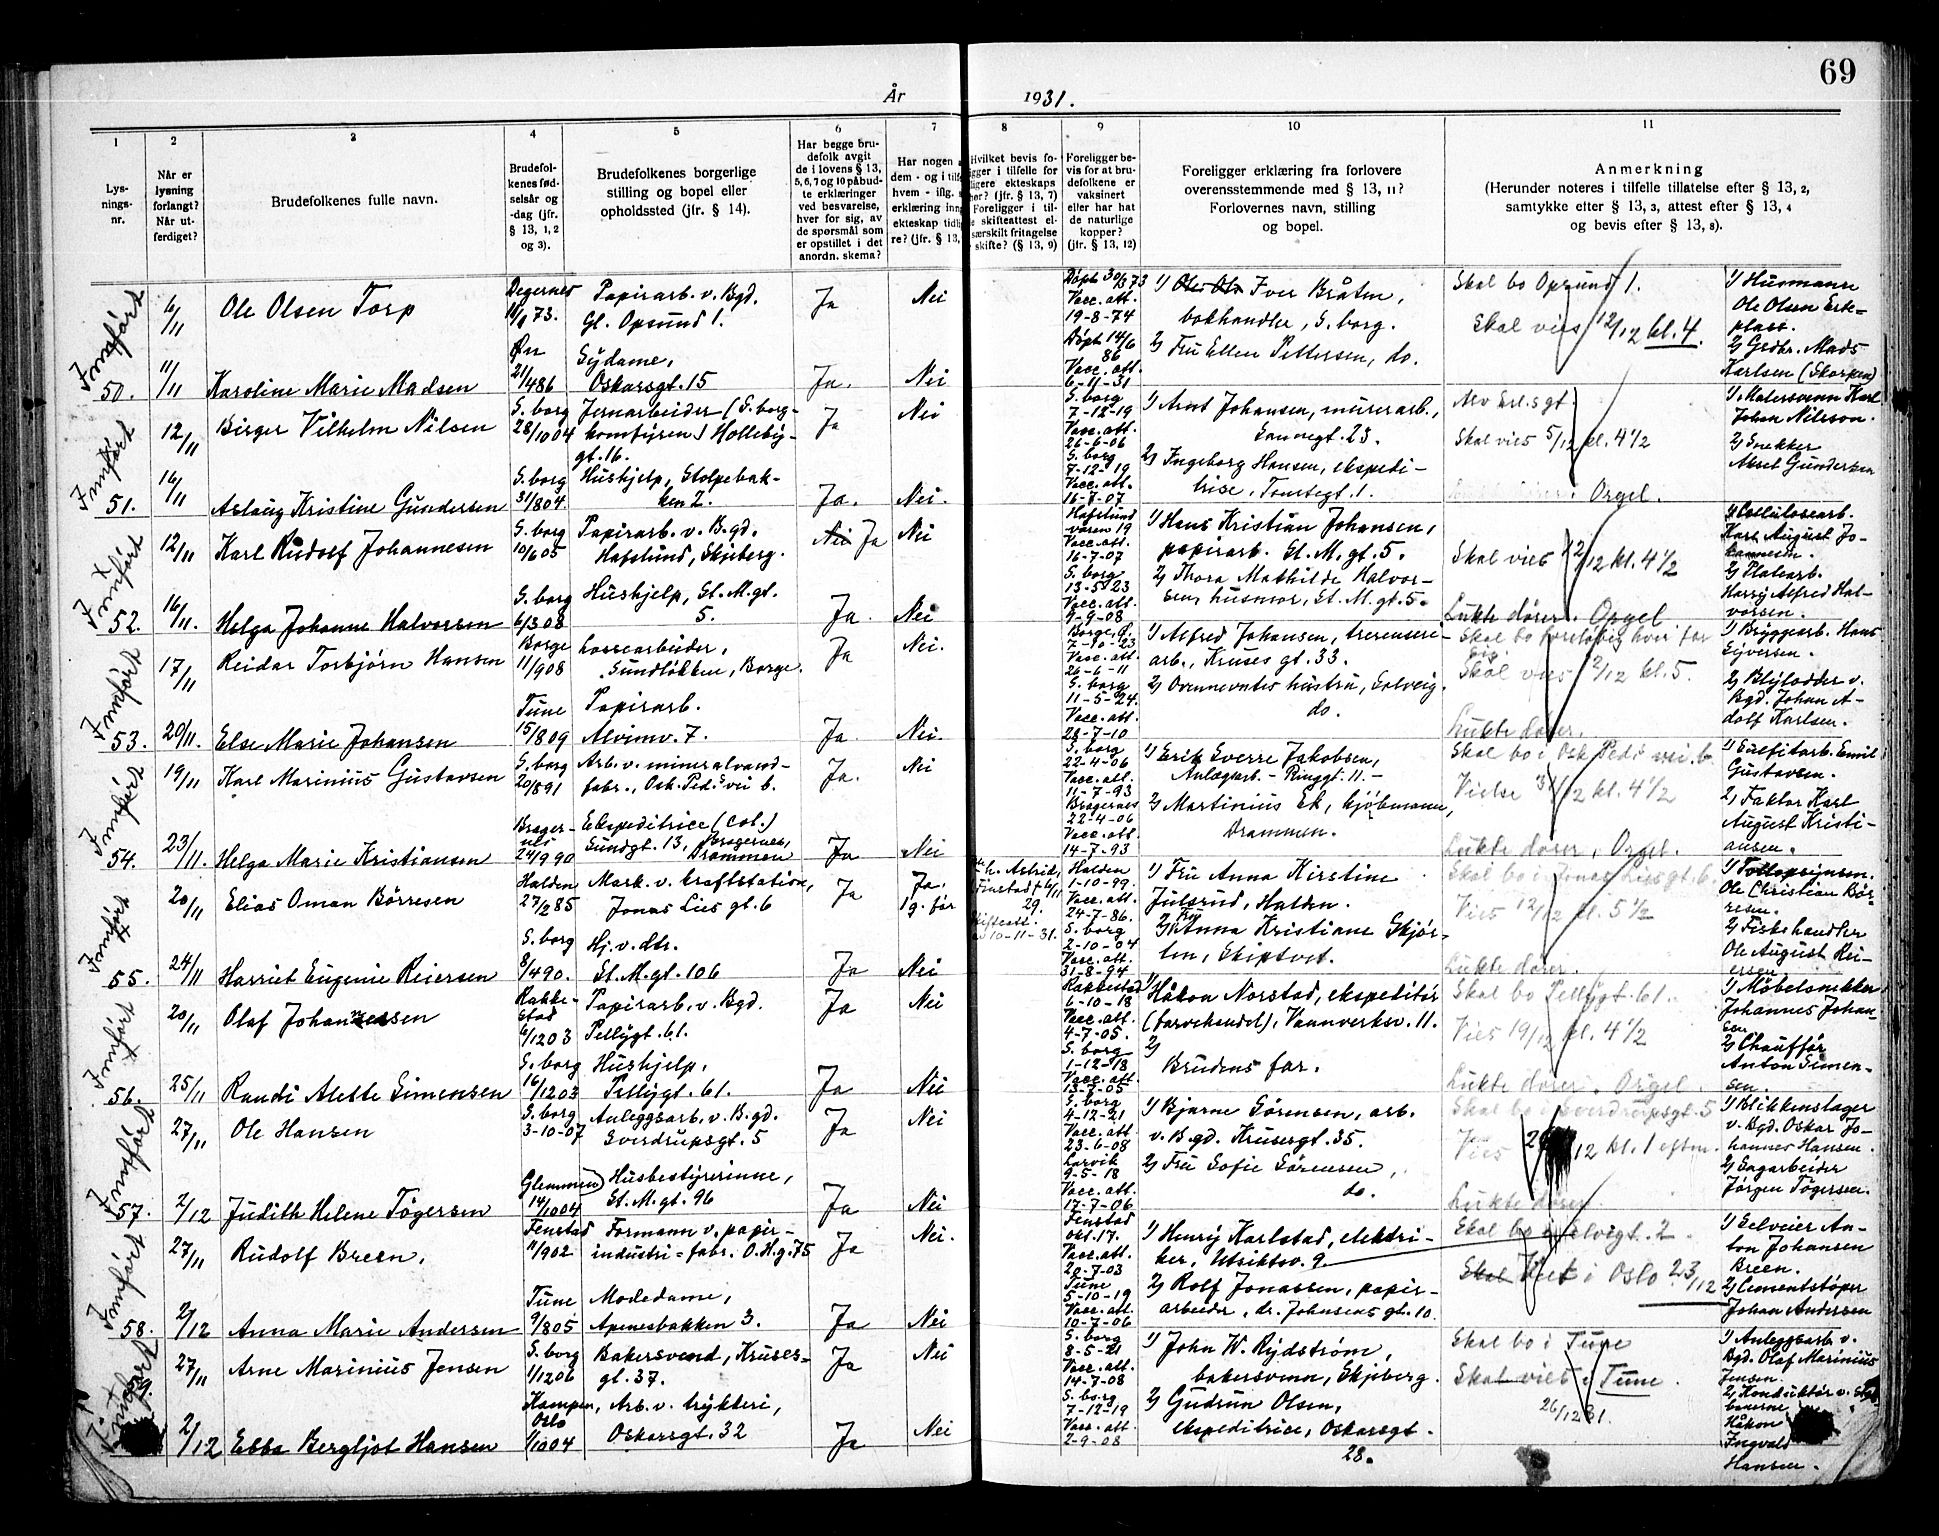 69
År 1931.
1 2 3 4 5 6 7 8 9 10 11
Lys-
nings-
nr.
Når er
lysning
forlangt?
Når ut-
ferdiget?
Brudefolkenes fulle navn.
Brudefol-
kenes fød-
selsår og
-dag (jfr.
§ 13, 1, 2
og 3).
Brudefolkenes borgerlige
stilling og bopel eller
opholdssted (jfr. § 14).
Har begge bru-
defolk avgit
de i lovens § 13,
5, 6, 7 og 10 påbud-
te erklæringer
ved besvarelse,
hver for sig, av
de spørsmål som
er opstillet i det
anordn. skema?
Har nogen a
dem - og i tilf
hvem - iflg. s
erklæring inng
ekteskap tidlig
re? (jfr. § 13,
Hvilket bevis fo-
igger i tilfelle for
ligere ekteskaps
hør? (jfr. § 13, 7)
Foreligger i til-
e skifteattest el-
særskilt fritagelse
skifte? (§ 13, 9)
Foreligger be-
vis for at bru-
defolkene er
vaksinert
eller har hat
de naturlige
kopper?
(jfr. § 13, 12)
Foreligger erklæring fra forlovere
overensstemmende med § 13, 11?
Forlovernes navn, stilling
og bopel.
Anmerkning
(Herunder noteres i tilfelle tillatelse efter § 13, 2,
samtykke efter § 13, 3, attest efter § 13, 4
og bevis efter § 13, 8).
Innført
50.
6/11 Ole Olsen Torp
Degernes 73.
Papirarb. v. Bgd.
Gl. Opsund 1.
Ja Nei
Døpt 30/3 73
Vacc. att.
19-8-74
1) Iver Bråten,
bokhandler, S. borg.
Skal bo Opsund 1.
Skal vies 12/12 kl. 4.
1) Husmann
Ole Olsen Eke-
plass.
11/11 Karoline Marie Madsen
21/4 86
Sydame,
Oskarsgt. 15
Ja. Nei
Døpt 14/6
86
Vacc. att.
6-11-31
2) Fru Ellen Pettersen, do.
2) Gedbr. Mads
Karlsen (Skorpen)
Innført
51.
12/11 Birger Vilhelm Nilsen
S. borg
28/10 04
Jernarbeider (S. borg-
komfyren) Hølleby-
gt. 16.
Ja Nei
S. borg
7-12-19
Vacc. att.
26-6-06
1) Arnt Johansen, murerarb.,
Sannegt. 23.
Skal vies 5/12 kl. 4 1/2
1) Malersvenn Karl
Johan Nilsson.
16/11 Aslaug Kristine Gundersen
S. borg
31/8 04.
Hushjelp, Stolpebak-
ken 2.
Ja. Nei.
S. borg
7-12-19
Vacc. att.
16-7-07
2) Ingeborg Hansen, ekspedi-
trise, Tomtegt. 1.
Orgel.
2) Snekker
Aksel Gundersen
Innført
52.
12/11 Karl Rudolf Johannesen
S. borg
10/6 05
Papirarb. v. B.gd.
Hafslund, Skjeberg.
Nei Ja Nei
Hafslund
våren 19
Vacc. att.
16-7-07
1) Hans Kristian Johansen,
papirarb. St. M. gt. 5.
Skal vies 12/12 kl. 4 1/2
1) Cellulosearb.
Karl August Jo-
hannesen.
16/11. Helga Johanne Halvorsen
S. borg
6/3 08
Hushjelp, St. M. gt.
5.
Ja. Nei
S. borg
13-5-23
Vacc. att.
9-9-08
2) Thora Mathilde Halvor-
sen, husmor, St. M. gt. 5.
Lukte dører. Orgel
2) Platearb.
Harry Alfred Hal-
vorsen.
Innført
53.
17/11 Reidar Torbjørn Hansen
Borge
11/9 08
Lossearbeider,
Sundløkken, Borge.
Ja Nei.
7-10-23
Vacc. att.
26-6-11
1) Alfred Johansen, trerenseri-
arb., Kruses gt. 33.
Skal bo foreløbig hver for
sig.
Skal vies 12/12 kl. 5.
1) Bryggearb. Hans
Sejversen.
20/11. Else Marie Johansen
Tune
15/8 09
Papirarb.
Alvimv. 7.
Ja. Nei.
S. borg
11-5-24.
Vacc. att.
28-7-10
2) Ovennevntes hustru, Solveig.
do.
Lukte dører.
2) Blylodder v.
Bgd. Johan A-
dolf Karlsen.
Innført
54.
19/11 Karl Marinius Gustavsen
S. borg
20/8 91
Arb. v. mineralvand-
fabr., Osk. Ped.s vei 6.
Ja. Nei
S. borg
22-4-06
Vacc. att.
11-7-93
1) Erik Sverre Jakobsen,
Anlegsarb. - Ringgt. 11. -
Skal bo i Osk Peds vei. 6
Vielse 31/12 kl. 4 1/2
1) Sulfitarb. Emil
Gustavsen.
23/11. Helga Marie Kristiansen
Brager-
nes
24/9 90
Ekspeditrice (col.)
Sundgt. 13, Bragernes,
Drammen
Ja Nei
Bragernes
22-4-06
Vacc. att.
14-7-93
2) Martinius Ek, kjøbmann,
Drammen.
Lukte dører, Orgel.
2) Faktor Karl
August Kristi-
ansen.
Innført
55.
20/11 Elias Oman Børresen
Halden
27/2 85
Mask. v. kraftstation,
Jonas Lies gt. 6
Ja Ja.
1 g. før
29.
10-11-31.
Halden
1-10-99.
Vacc. att.
24-7-86.
1) Fru Anna Kirstine
Julsrud, Halden.
Skal bo i Jonas Lies gt. 6.
Vies 12/12 kl. 5 1/2
1) Toldopsynsm.
Ole Christian Bør-
resen.
24/11 Harriet Eugenie Reiersen
S. borg
8/4 90.
Hj. v. do.
St. M. gt. 106
Ja Nei
S. borg
2-10-04
Vacc. att.
31-8-94
2) Fru Anna Kristiane Skjør-
ten, Skiptvet.
Lukte dører.
2) Fiskehandler
Ole August Rei-
ersen
Innført
56.
20/11 Olaf Johannessen
Rakke-
stad
6/12 03
Papirarb. v. Bgd.
Pellygt. 61.
Ja Nei
Rakkestad
6-10-18
Vacc. att.
4-7-05.
1) Håkon Norstad, ekspeditør
(farvehandel), Vannverksv. 11.
Skal bo Pellygt. 61.
Vies 19/12 kl. 4 1/2
1) Møbelsnekker
Johannes Johan-
sen
25/11 Randi Alette Simensen
S. borg
16/12 03
Hushjelp,
Pellygt. 61.
Ja Nei
S. borg
1-12-18
Vacc. att.
13-7-05
2)
Brudens far.
Lukte dører. Orgel.
2) Chauffør
Anton Simen-
sen.
Innført
57.
27/11 Ole Hansen
S. borg
3-10-07
Anleggsarb. v. B.gd.
Sverdrupsgt. 5
Ja Nei
S. borg
4-12-21
Vacc. att.
23-6-08
1) Bjarne Sørensen, arb.
v. B.gd. Krusesgt. 35.
Skal bo i Sverdrupsgt. 5
Vies 12 kl. 1 eftm.
1) Blikkenslager
v. Bgd. Oskar Jo-
hannes Hansen.
2/12 Judith Helene Tøgersen
Glemmen
14/10 04
Husbestyrerinne,
St. M. gt. 96
Ja Nei
Larvik
9-5-18
Vacc. att.
17-7-06
2) Fru Sofie Sørensen,
do.
Lukte dører.
2) Sagarbeider
Jørgen Tøgersen.
Innført
58.
27/11 Rudolf Breen,
Fenstad
11/9 02
Formann v. papir-
industri = fabr. O. H. g. 75
Ja Nei.
Fenstad
okt. 17.
Vacc. att.
20-7-03
1) Henry Karlstad, elektri-
ker, Utsiktsv. 9.
Skal bo i Solvigt. 2
Skal Viet i Oslo 23/12
1) Selveier An-
ton Johansen
Breen.
2/12 Anna Marie Andersen
Tune
9/8 05
Modedame,
Apenesbakken 3.
Ja Nei
Tune
5-10-19
Vacc. att.
10-7-06
2) Rolf Jonassen, papir-
arbeider, dr. Johnsens gt. 10.
2) Cementstøper
Johan Andersen
Innført
59.
27/11 Arne Marinius Jensen
S. borg
1/12 06
Bakersvend, Kruses-
gt. 37.
Ja Nei
S. borg
8-5-21
Vacc. att.
14-7-08
1) John W. Rydstrøm,
bakersvenn, Skjeberg.
Skal bo i Tune
Skal vies i Tune.
26/12 31.
1) Anleggsarb. v.
Bgd. Olaf Marinius
Jensen.
2/12 Ebba Bergljot Hansen
Kampen,
Oslo
1/10 04
Arb. v. trykkeri,
Oskarsgt. 32
Ja Nei
S. borg
7-12-19
Vacc. att.
2-9-08
2) Gudrun Olsen,
ekspeditrice, Oskarsgt.
28.
2) Konduktør v.
Håkon
Ingvald
Hansen.